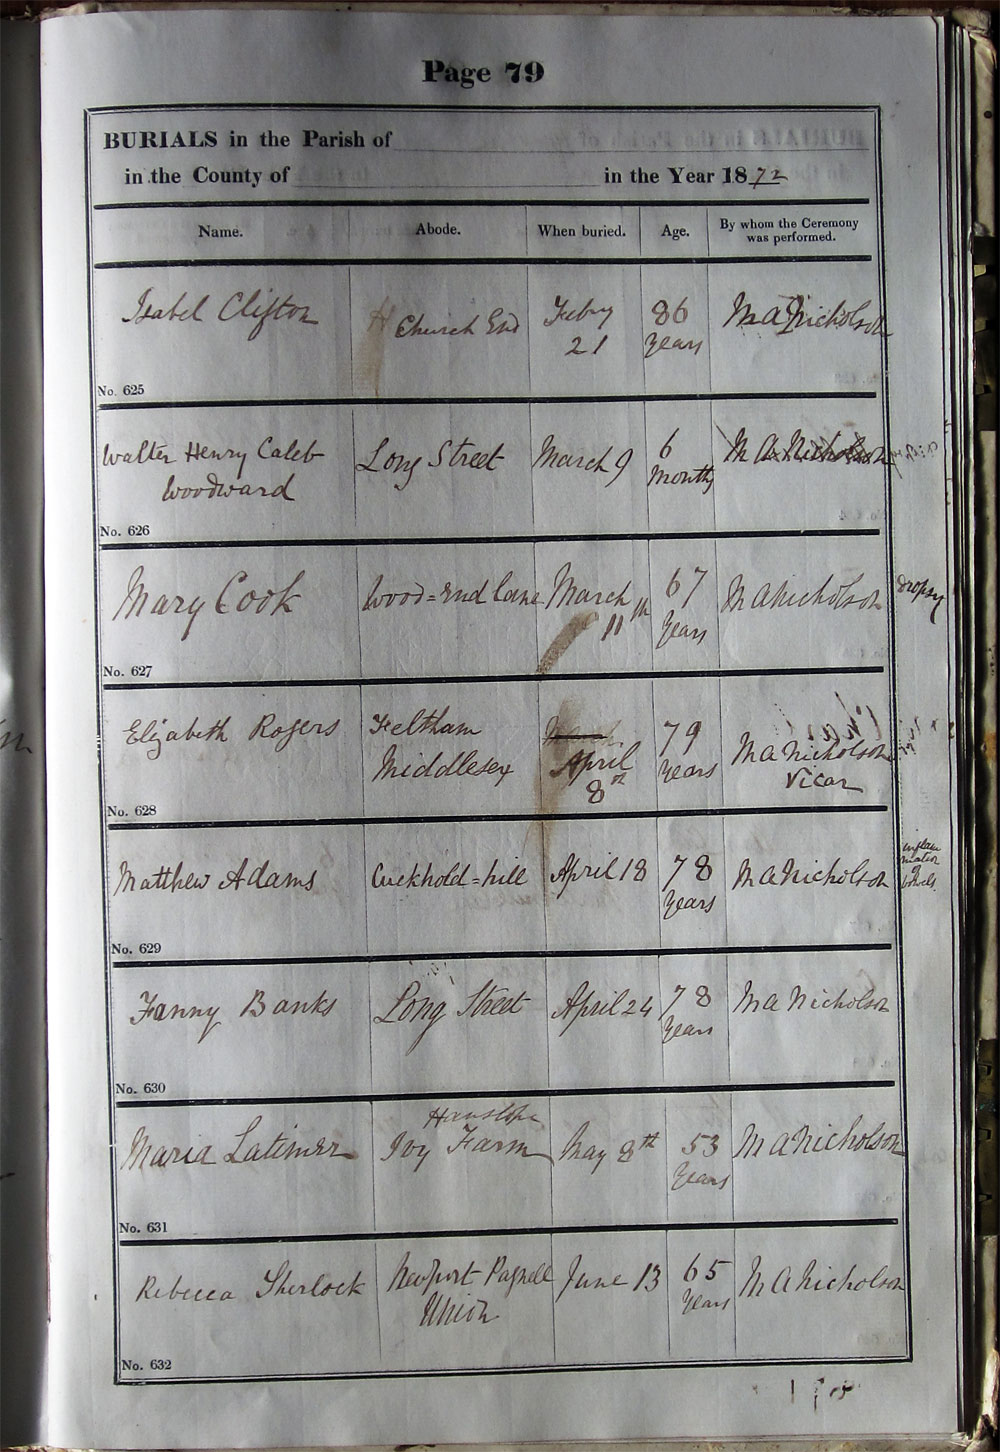 Page 79
BURIALS in the Parish of
in the County of in the Year 1872
Name. Abode. When buried. Age. By whom the Ceremony was performed.
Isabel Clifton
Church End
Feby
21
86
years
M A Nicholson
No. 625
Walter Henry Caleb
Woodward
Long Street
March 9
6
months
M A Nicholson
No. 626
Mary Cook
Wood=End lane
March
11th
67
years
M A Nicholson
dropsy
No. 627
Elizabeth Rogers
Feltham
Middlesex
March
April
8th
79
years
M A Nicholson
Vicar
No. 628
Matthew Adams
Cuckhold=hill
April 18
78
years
M A Nicholson
inflam
mation
of
bowels
No. 629
Fanny Banks
Long Street
April 24
78
years
M A Nicholson
No. 630
Maria Latimer
Hanslope
Ivy Farm
May 8th
53
years
M A Nicholson
No. 631
Rebecca Sherlock
Newport Pagnell
Union
June 13
65
years
M A Nicholson
No. 632